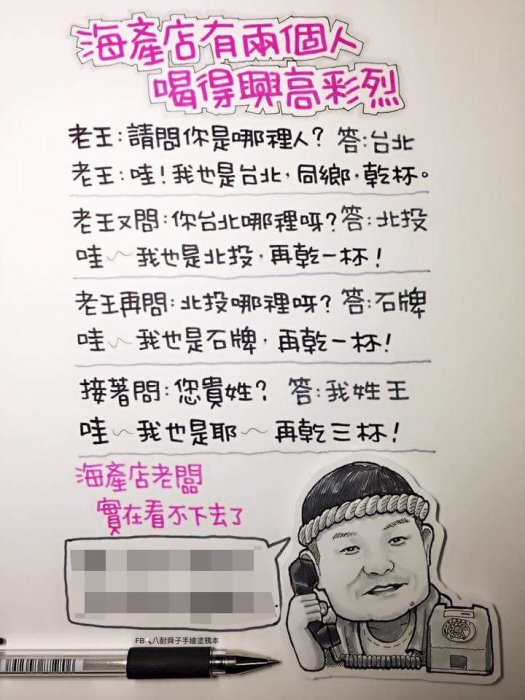 海產店有兩個人
喝得興高彩烈
老王:請問你是哪裡人? 答:台北
老王:哇!我也是台北,同鄉,乾杯。
老王又問:你台北哪裡呀?答:北投
哇~我也是北投,再乾一杯!
老王再問:北投哪裡呀? 答:石牌
哇~我也是石牌,再乾一杯!
接著問:您貴姓? 答:我姓王
哇~我也是耶~再乾三杯!
海產店老闆
實在看不下去了